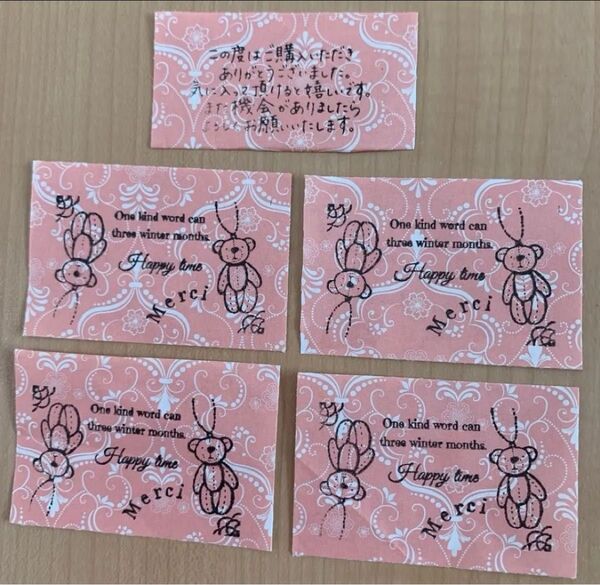 この度はご購入いただき
ありがとうございました。
気に入って頂けると嬉しいです。
また機会がありましたら
よろしくお願いいたします。
One kind word can
three winter months.
Happy time
Merci
One kind word can
three winter months.
Happy time
Merci
One kind word can
three winter months.
Happy time
Merci
One kind word can
three winter months.
Happy time
Merci